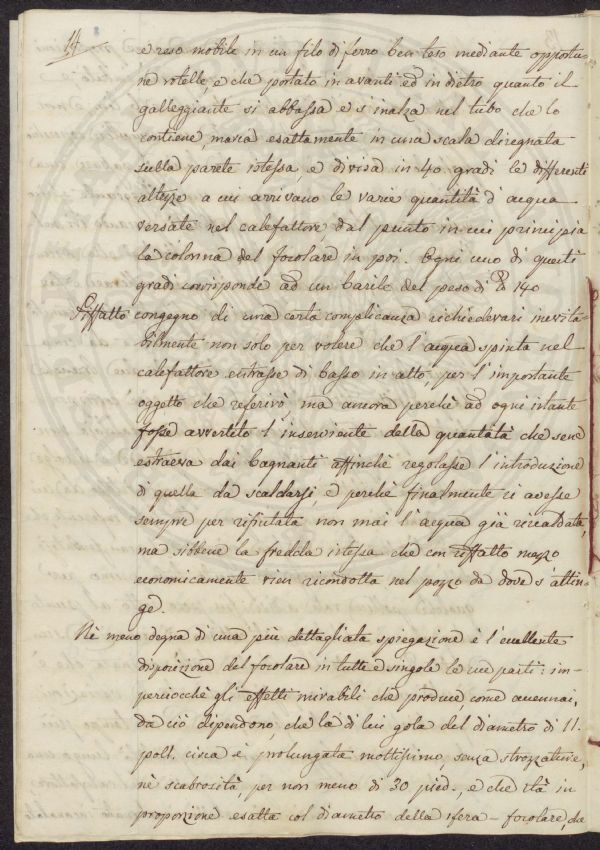 14
e reso mobile in un filo di ferro ben teso mediante opportu-
ne rotelle, e che portato in avanti ed in dietro quanto il
galleggiante si abbassa e s'inalza nel tubo che lo
contiene, marca esattamente in una scala disegnata
sulla parete istessa, e divisa in 40. gradi le differenti
altezze a cui arrivano le varie quantità d'acqua
versate nel calefattore dal punto in cui principia
la colonna del focolare in poi. Ogni uno di questi
gradi corrisponde ad un barile del peso di ℔ 140
Siffatto congegno di una certa complicanza richiedevasi inevita-
bilmente non solo per volere che l'acqua spinta nel
calefattore entrasse di basso in alto, per l'importante
oggetto che referirò, ma ancora perchè ad ogni istante
fosse avvertito l'inserviente della quantità che sene
estraeva dai bagnanti affinchè regolasse l'introduzione
di quella da scaldarsi, e perchè finalmente si avesse
sempre per rifiutata non mai l'acqua già riscaldata,
ma sibbene la fredda istessa che con siffatto mezzo
economicamente vien ricondotta nel pozzo da dove s'attin-
ge.
Nè meno degna di una più dettagliata spiegazione è l'eccellente
disposizione del focolare in tutte e singole le sue parti: im-
perciocchè gli effetti mirabili che produce come accennai,
da ciò dipendono, che la di lui gola del diametro di 11.
poll. circa è prolungata moltissimo, senza strozzature,
nè scabrosità, per non meno di 30 pied., e che stà in
proporzione esatta col diametro della sfera-focolare, da